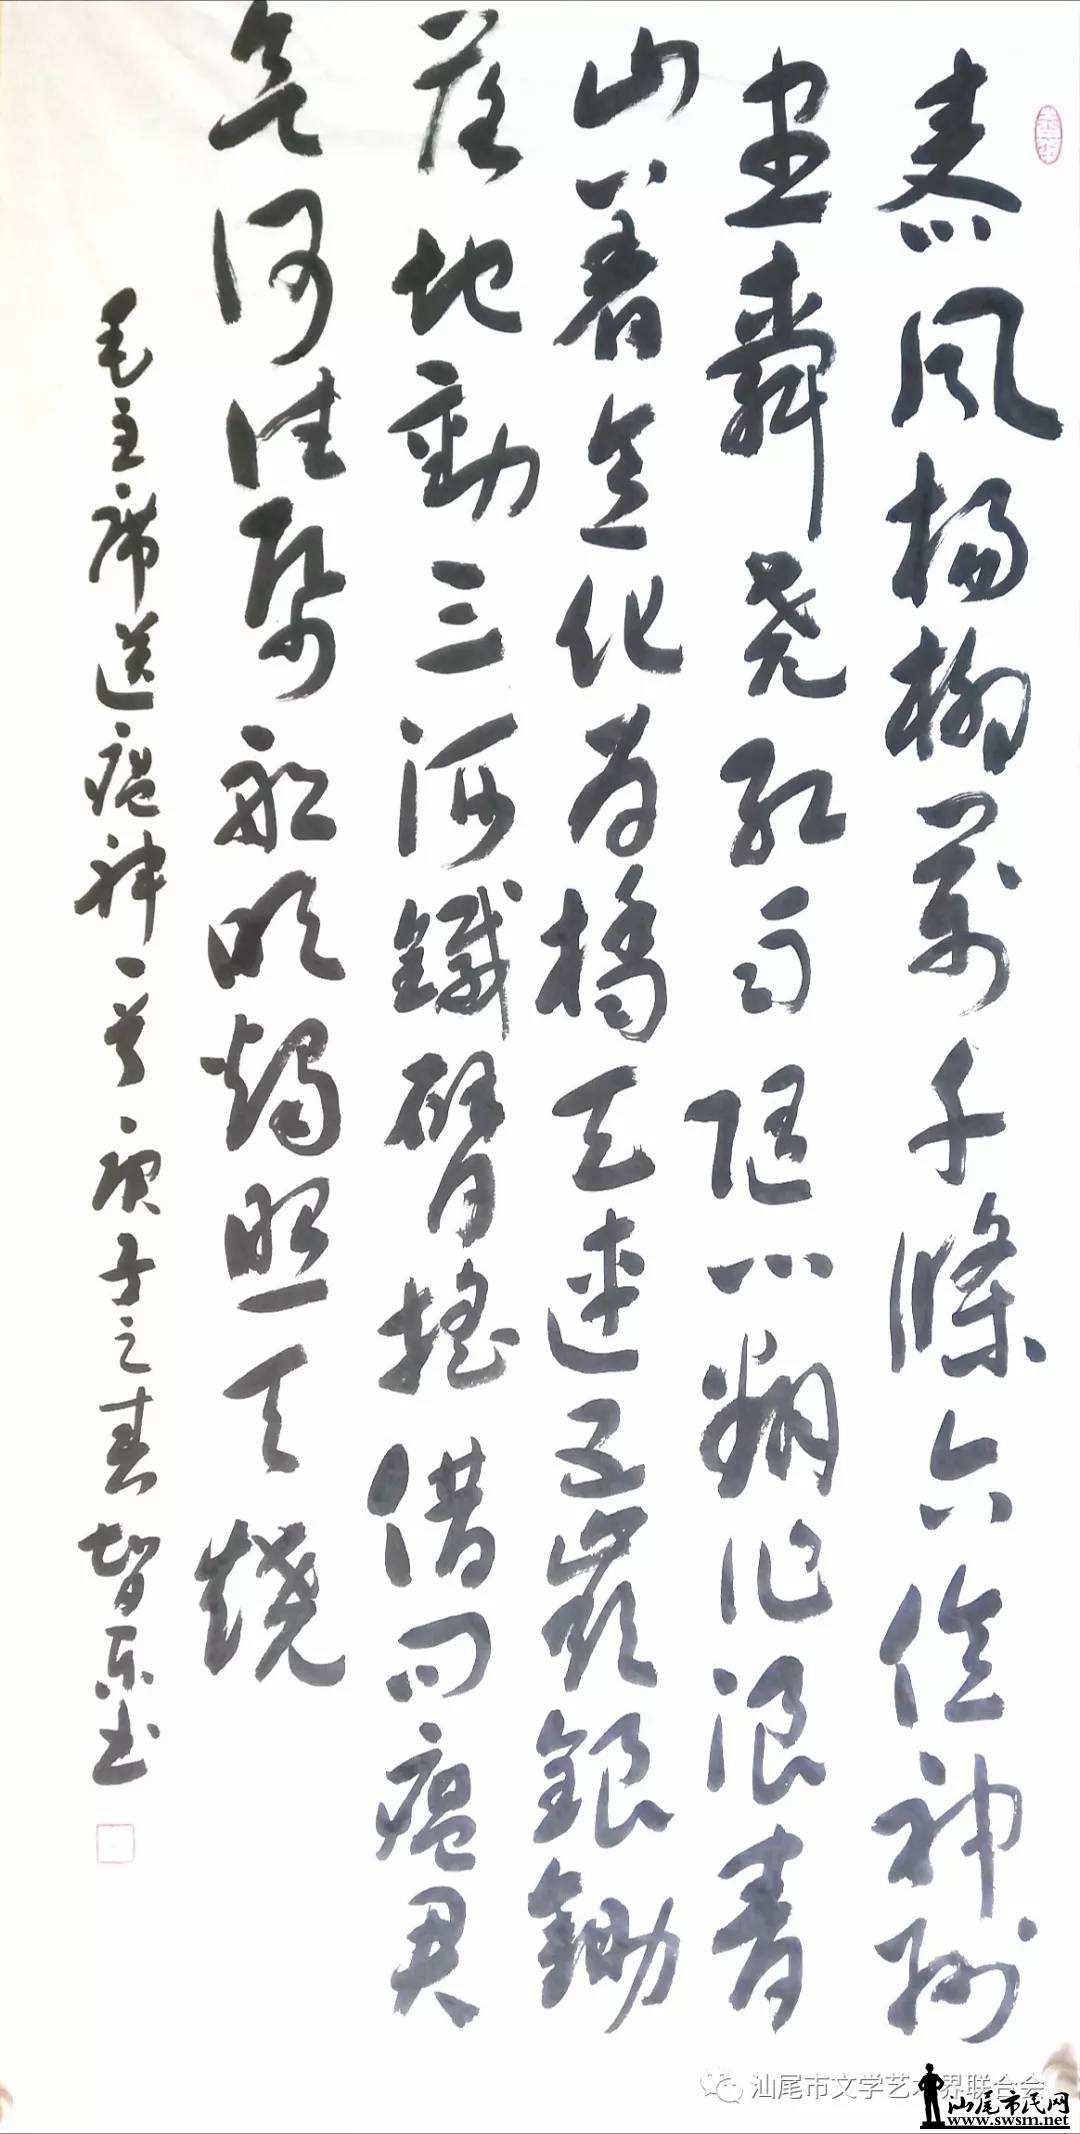 春風楊柳萬千條六億神州
盡舜堯紅雨随心翻作浪青
山着意化为橋天連五嶺銀鋤
落地動三河鐵臂摇借问瘟君
欲何往帋船明燭照天燒
毛主席送瘟神一首庚子之春 智东书
汕尾市文学艺术界联合会
汕尾市民网
www.swsm.net